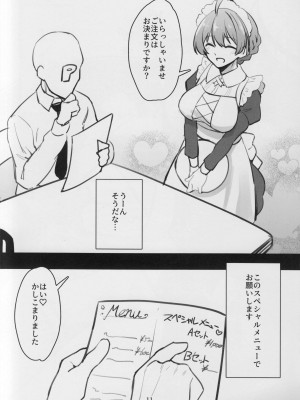 いらっしゃいませ
ご注文は
お決まりですか？
P
うーん
そうだな…
このスペシャルメニューで
お願いします
Menu
スペシャルメニュー
Aセット
Bセット
はい♡
かしこまりました